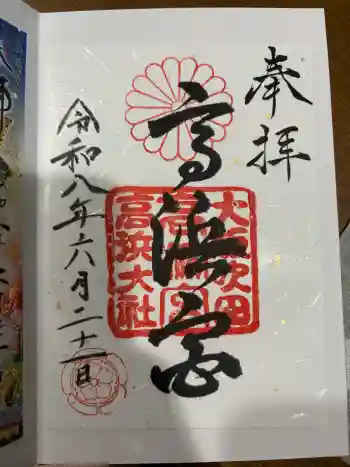 奉拝
高浜宮
大阪吹田
高浜宮
高浜大社
令和八年六月二十一日